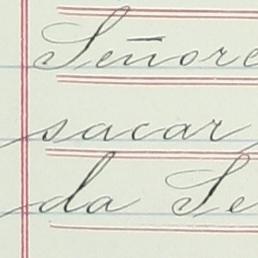 Señore
sacar
da Se